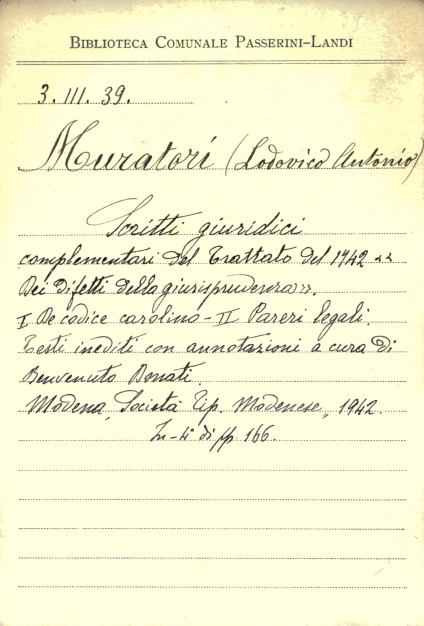 BIBLIOTECA COMUNALE PASSERINI-LANDI
3. III. 39.
Muratori (Lodovico Antonio)
Scritti giuridici
complementari del Trattato del 1742 <<
Dei Difetti della giurisprudenza>>.
I De codice carolino - II Pareri legali.
Testi inediti con annotazioni a cura di
Benvenuto Donati.
Modena, Società Tip. Modenese, 1942.
In-4° di pp 166.